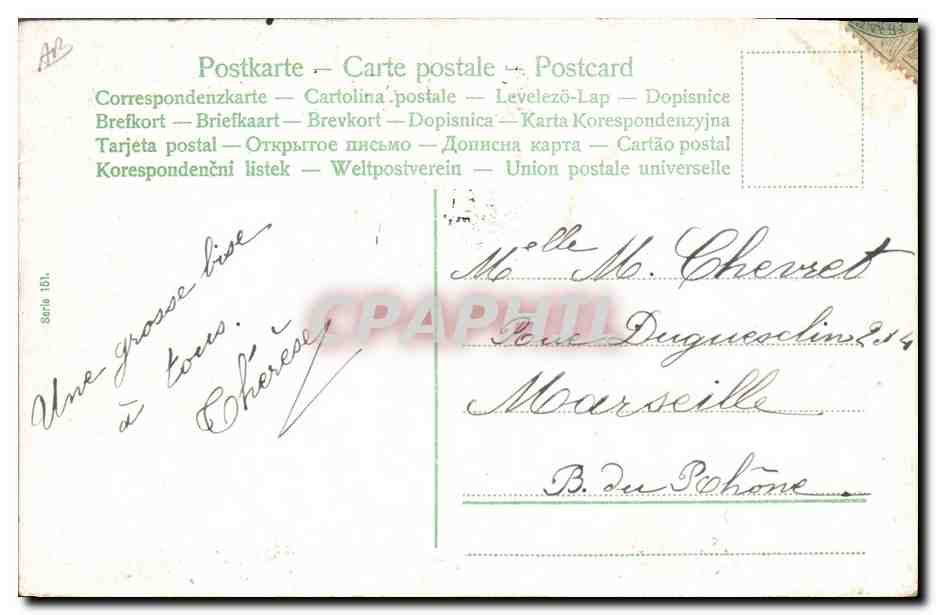 AB
Postkarte – Carte postale – Postcard
Correspondenzkarte — Cartolina postale — Levelezö-Lap — Dopisnice
Brefkort — Briefkaart — Brevkort — Dopisnica — Karta Korespondenzyjna
Tarjeta postal — Открытое письмо — Дописна карта — Cartão postal
Korespondenčni listek — Weltpostverein — Union postale universelle
Serie 151.
Une grosse bise
à tous.
Thérèse
Melle M. Chevret
Rue Duguesclin
Marseille
B. du Rhône.
CPAPHIL